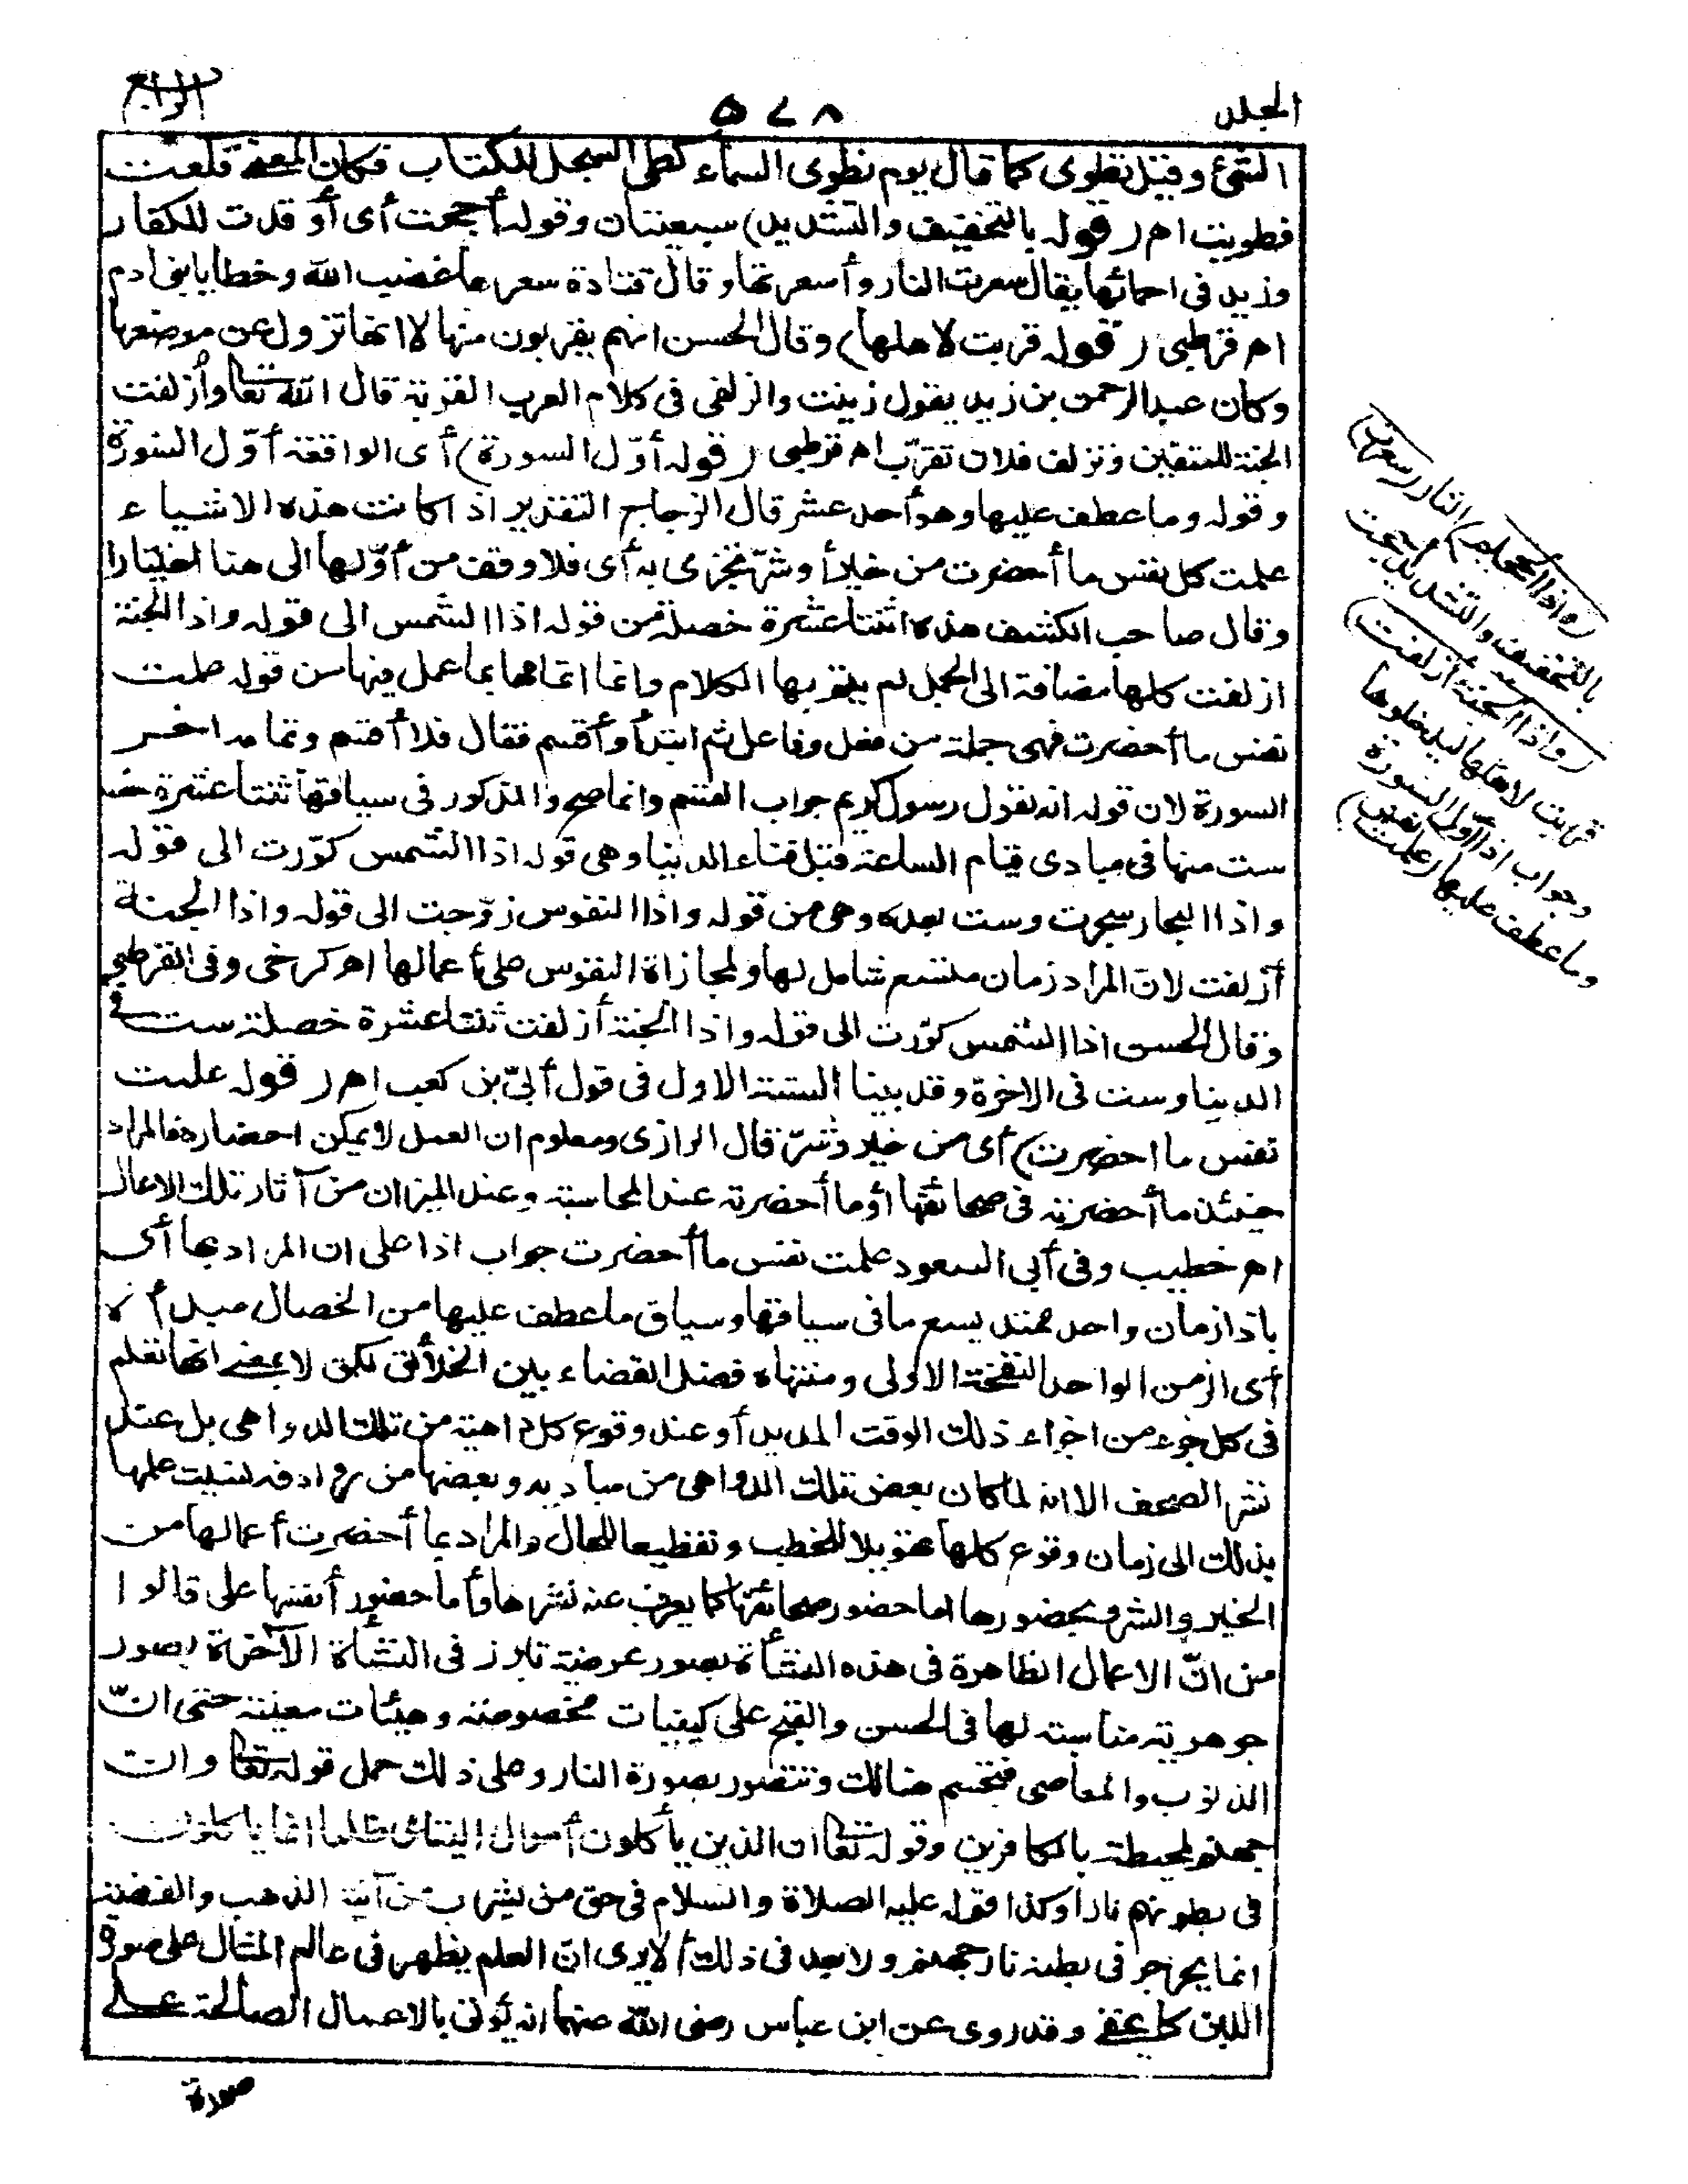 المجلد
٥٧٨
الرابع
الشئ وقيل تطوى كما قال يوم نطوى السماء كطى السجل للكتاب فكان المعنى قلعت
فطويت اهر (قوله بالتخفيف والتشديد) سبعيتان وقوله أججت أى أوقدت للكفار
وزيد فى احمائها يقال سعرت النار وأسعرتها وقال قتادة سعرها غضب الله وخطايا بنى ادم
اهر قرطبى (قوله قربت لاهلها) وقال الحسن انهم يقربون منها لا انها تزول عن موضعها
وكان عبد الرحمن بن زيد يقول زينت والزلفى فى كلام العرب القربة قال الله تعا وأزلفت
الجنة للمتقين وتزلف فلان تقرّب اهر قرطبى (قوله أوّل السورة) أى الواقعة أوّل السورة
وقوله وما عطف عليها وهو أحد عشر قال الزجاج التقدير اذا كانت هذه الاشياء
علمت كل نفس ما أحضرت من خير أو شرّ تجزى به أى فلا وقف من أوّلها الى هنا اختيارا
وقال صاحب الكشف هذه اثنتا عشرة خصلة من قوله اذا الشمس الى قوله واذا الجنة
ازلفت كلها مضافة الى الجمل لم يتم بها الكلام وانما اتمامها بما عمل فيها من قوله علمت
نفس ما أحضرت فهى جملة من فعل وفاعل ثم ابتدأ وأقسم فقال فلا أقسم وتمامه اخر
السورة لان قوله انه لقول رسول كريم جواب القسم وانما صح والمذكور فى سياقها ثنتا عشرة خصلة
ست منها فى مبادى قيام الساعة قبل فناء الدنيا وهى قوله اذا الشمس كوّرت الى قوله
واذا البحار سجرت وست بعده وهى من قوله واذا النفوس زوّجت الى قوله واذا الجنة
أزلفت لان المراد زمان متسع شامل لها ولمجازاة النفوس على أعمالها اهر كرخى وفى القرطبى
وقال الحسن اذا الشمس كوّرت الى قوله واذا الجنة أزلفت ثنتا عشرة خصلة ست فى
الدنيا وست فى الاخرة وقد بينا الستة الاول فى قول أبىّ بن كعب اهر (قوله علمت
نفس ما احضرت) أى من خير وشرّ قال الرازى ومعلوم ان العمل لا يمكن احضاره فالمراد
حينئذ ما أحضرته فى صحائفها أو ما أحضرته عند المحاسبة وعند الميزان من آثار تلك الاعمال
اهر خطيب وفى أبى السعود علمت نفس ما أحضرت جواب اذا على ان المراد بها أى
باذا زمان واحد ممتد يسع ما فى سياقها وسياق ما عطف عليها من الخصال مبدأه
أى الزمن الواحد النفخة الاولى ومنتهاه فصل القضاء بين الخلائق لكن لا بمعنى انها تعلم
فى كل جزء من اجزاء ذلك الوقت المديد أو عند وقوع كل داهية من تلك الدواهى بل عند
نشر الصحف الا انه لما كان بعض تلك الدواهى من مباديه وبعضها من روادفه نسبت علمها
بذلك الى زمان وقوع كلها تهويلا للخطب وتفظيعا للحال والمراد بما أحضرت أعمالها من
الخير والشر وبحضورها اما حضور صحائفها كما يعرب عنه نشرها وأما حضور أنفسها على قالوا
من انّ الاعمال الظاهرة فى هذه النشأة بصور عرضية تبرز فى النشأة الآخرة بصور
جوهرية مناسبة لها فى الحسن والقبح على كيفيات مخصوصة وهيئات معينة حتى انّ
الذنوب والمعاصى فتجسم هنالك وتتصور بصورة النار وعلى ذلك حمل قوله تعا وان
جهنم لمحيطة بالكافرين وقوله تعا ان الذين يأكلون أموال اليتامى ظلما انما يأكلون
فى بطونهم نارا وكذا قوله عليه الصلاة والسلام فى حق من يشرب من آنية الذهب والفضة
انما يجرجر فى بطنه نار جهنم ولا بعد فى ذلك ألا يرى انّ العلم يظهر فى عالم المثال على صورة
اللبن كما يخفى وقد روى عن ابن عباس رضى الله عنهما انه يؤتى بالاعمال الصالحة على
صورة
(واذا الجحيم) النار (سعرت)
بالتخفيف والتشديد أججت
(واذا الجنة أزلفت)
قربت لاهلها ليدخلوها
وجواب اذا أوّل السورة
وما عطف عليها (علمت نفس)